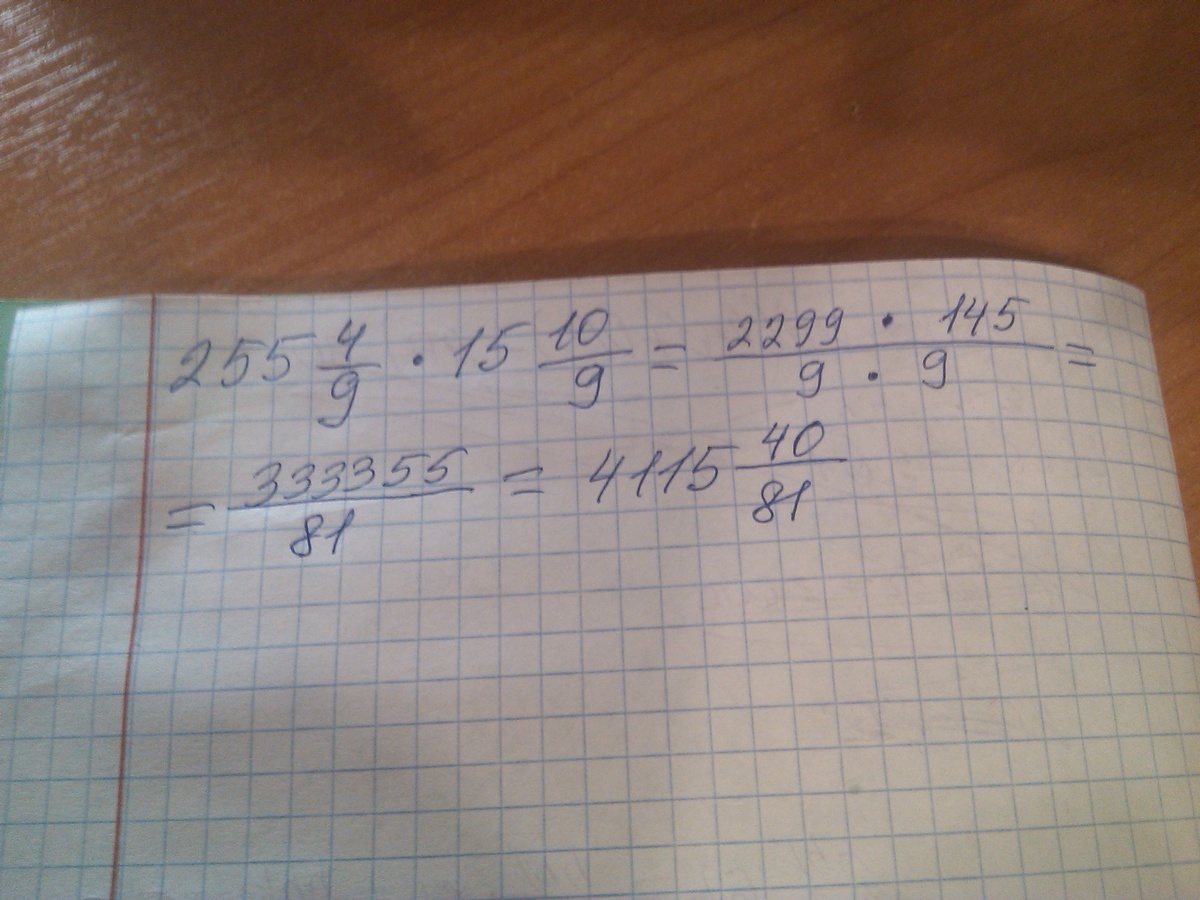 255 4/9 · 15 10/9 = (2299 · 145)/(9 · 9) =
= 333355/81 = 4115 40/81